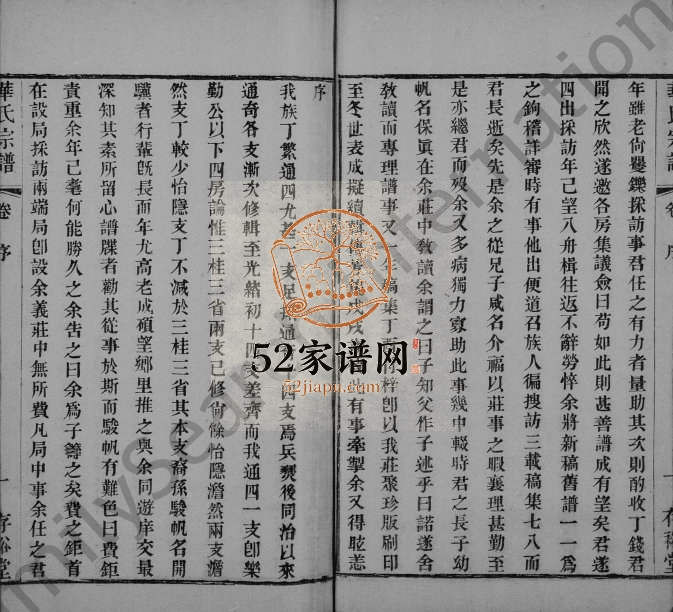 華氏宗譜
卷 序
一 存裕堂
年雖老尙矍鑠採訪事君任之有力者量助其次則酌收丁錢君
聞之欣然遂邀各房集議僉曰苟如此則甚善譜成有望矣君遂
四出採訪年已望八舟楫往返不辭勞悴余將新稿舊譜一一爲
之鉤稽詳審時有事他出便道召族人徧搜訪三載稿集七八而
君長逝矣先是余之從兄子咸名介福以莊事之暇襄理君勤至
是亦繼君而歿余又多病獨力寡助此事幾中輟時君之長子幼
帆名保眞在余莊中敎讀余謂之曰子知父作子述乎曰諾遂舍
敎讀而專理譜事又一年稿集丁酉付梓卽以我莊聚珍版刷印
至冬世表成擬續輯傳芳集戊戌 有事牽掣余又得眩志
序
我族丁繁通四尤甚 支足 通 四支焉兵燹後同治以來
通奇各支漸次修輯至光緒初十四支差齊而我通四一支卽樂
勤公以下四房論惟三桂三省兩支已修尙餘怡隱澹然兩支澹
然支丁較少怡隱支丁不減於三桂三省其本支裔孫駿帆名開
驥者行輩旣長而年尤高老成碩望鄉里推之與余同遊庠交最
深知其素所留心譜牒者勸其從事於斯而駿帆有難色曰費鉅
責重余年已耄何能勝久之余告之曰余爲子籌之矣費之鉅首
在設局採訪兩端局卽設余義莊中無所費凡局中事余任之君
華氏宗譜
卷 序
一 存裕堂
52家谱网
52jiapu.com